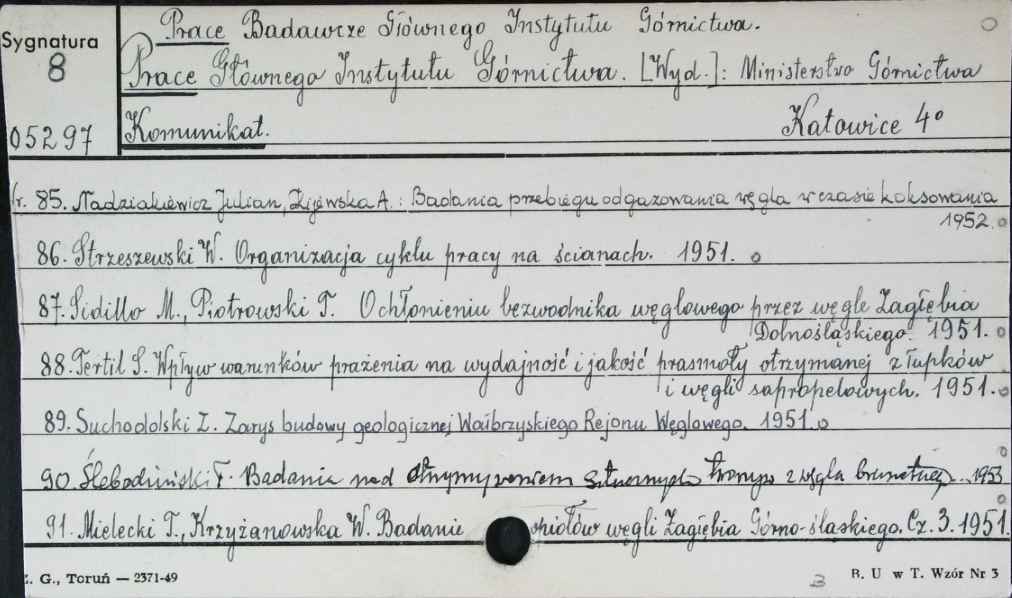 Sygnatura
8
05297
Prace Badawcze Głównego Instytutu Górnictwa.
Prace Głównego Instytutu Górnictwa. [Wyd.]: Ministerstwo Górnictwa
Komunikat. Katowice 4°
85. Nadziakiewicz Julian, Żyjewska A.: Badania przebiegu odgazowania węgla w czasie koksowania
1952.
86. Strzeszewski W. Organizacja cyklu pracy na ścianach. 1951.
87. Sidillo M., Piotrowski T. O chłonieniu bezwodnika węglowego przez węgle Zagłębia
Dolnośląskiego. 1951.
88. Tertil S. Wpływ warunków prażenia na wydajność i jakość prasmoły otrzymanej z łupków
i węgli sapropelowych. 1951.
89. Suchodolski Z. Zarys budowy geologicznej Wałbrzyskiego Rejonu Węglowego. 1951.
90. Ślebodziński T. Badania nad otrzymywaniem z węgla brunatnego. 1953
91. Mielecki T., Krzyżanowska W. Badanie popiołów węgli Zagłębia Górno-śląskiego. Cz. 3. 1951.
Z. G., Toruń — 2371-49
3
B. U w T. Wzór Nr 3